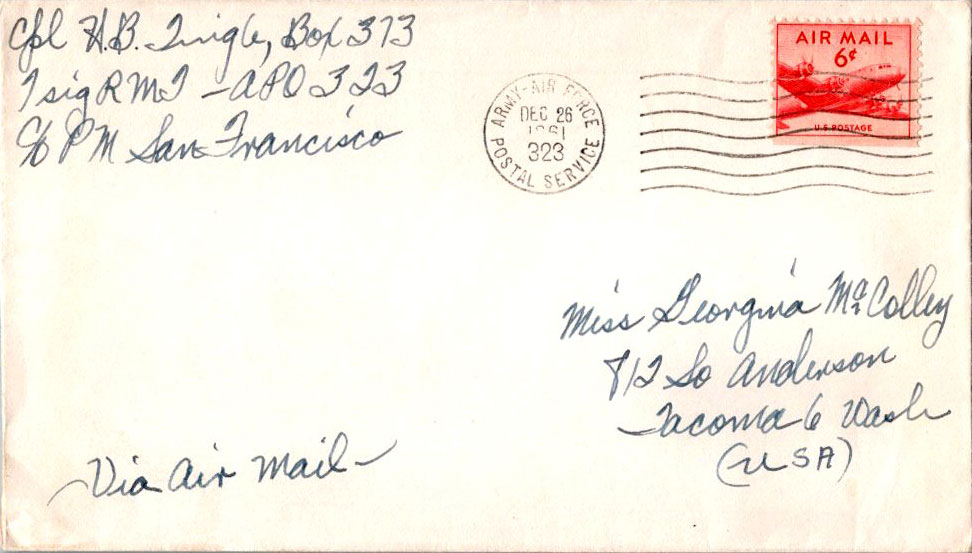 Cpl H.B. Tingle, Box 373
7 sig RMT - APO 323
c/o PM San Francisco
AIR MAIL
6¢
U.S. POSTAGE
ARMY-AIR FORCE
DEC 26
1961
323
POSTAL SERVICE
Miss Georgina McColley
812 So Anderson
Tacoma 6 Wash
(USA)
Via Air Mail